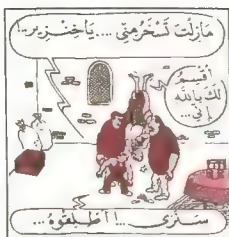 مَازِلْتَ تَسْخَرُ مِنِّي .... يَاخِنْزِيرُ..!
أُقْسِمُ
لَكَ بِاللَّهِ
إِنِّي...
سَنَرَى ...! أَطْلِقُوهُ ...